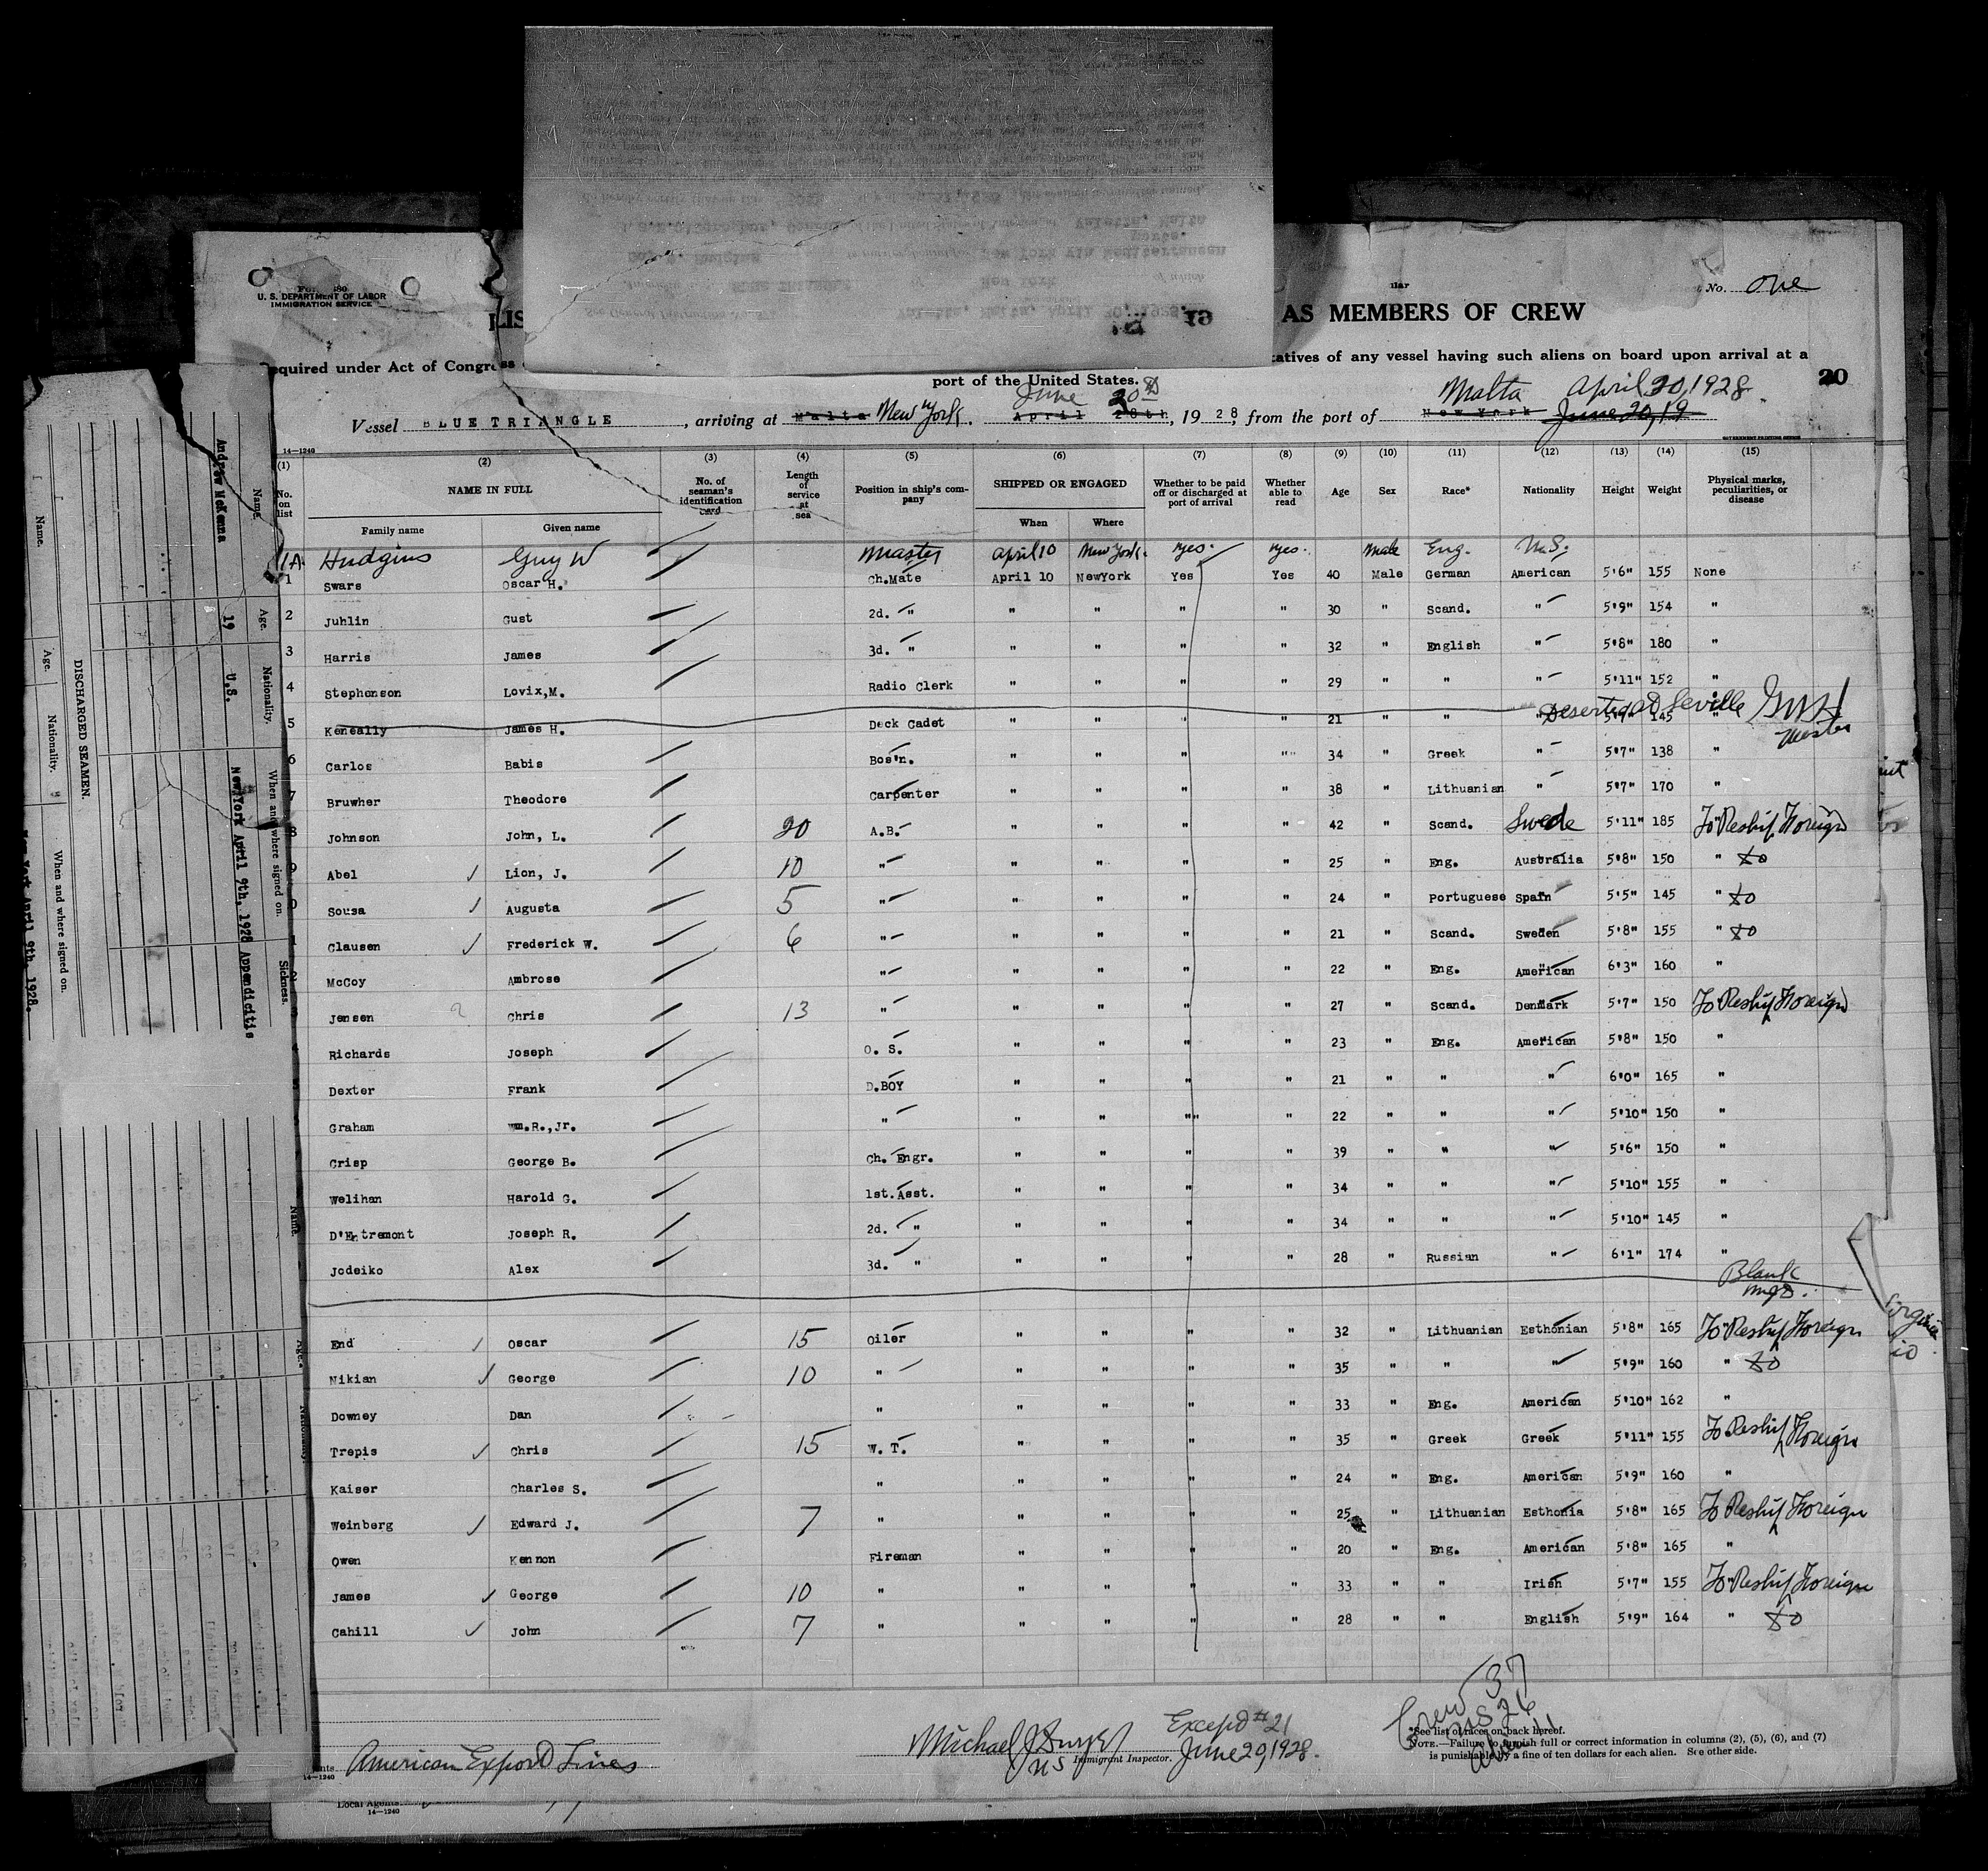 U. S. DEPARTMENT OF LABOR
IMMIGRATION SERVICE
No. One
AS MEMBERS OF CREW
equired under Act of Congress
tatives of any vessel having such aliens on board upon arrival at a
port of the United States.
20
Vessel BLUE TRIANGLE, arriving at Malta New York. April 28th June 20th, 1928, from the port of New York Malta June 20, 19 April 30, 1928
14—1240
GOVERNMENT PRINTING OFFICE
(1) (2) (3) (4) (5) (6) (7) (8) (9) (10) (11) (12) (13) (14) (15)
No. on list NAME IN FULL No. of seaman's identification card Length of service at sea Position in ship's company SHIPPED OR ENGAGED Whether to be paid off or discharged at port of arrival Whether able to read Age Sex Race* Nationality Height Weight Physical marks, peculiarities, or disease
Family name Given name When Where
1A Hudgins Guy W Master April 10 New York. yes. yes. Male Eng. U.S.
1 Swars Oscar H. Ch.Mate April 10 NewYork Yes Yes 40 Male German American 5'6" 155 None
2 Juhlin Gust 2d. " " " " " 30 " Scand. " 5'9" 154 "
3 Harris James 3d. " " " " " 32 " English " 5'8" 180 "
4 Stephenson Lovix,M. Radio Clerk " " " " 29 " " " 5'11" 152 "
5 Keneally James H. Deck Cadet " " " " 21 " " " 5'9" 145 " Deserted at Seville GWH Master
6 Carlos Babis Bos'n. " " " " 34 " Greek " 5'7" 138 "
7 Bruwher Theodore Carpenter " " " " 38 " Lithuanian " 5'7" 170 "
8 Johnson John, L. 20 A.B. " " " " 42 " Scand. Swede 5'11" 185 " To Reship Foreign
9 Abel Lion, J. 10 " " " " " 25 " Eng. Australia 5'8" 150 " do
0 Sousa Augusta 5 " " " " " 24 " Portuguese Spain 5'5" 145 " do
1 Clausen Frederick W. 6 " " " " " 21 " Scand. Sweden 5'8" 155 " do
2 McCoy Ambrose " " " " " 22 " Eng. American 6'3" 160 "
3 Jensen Chris 13 " " " " " 27 " Scand. Denmark 5'7" 150 To Reship Foreign
4 Richards Joseph O. S. " " " " 23 " Eng. American 5'8" 150 "
5 Dexter Frank D.BOY " " " " 21 " " " 6'0" 165 "
Graham Wm.R.,Jr. " " " "" " 22 " " " 5'10" 150 "
Crisp George B. Ch. Engr. " " " " 39 " " " 5'6" 150 "
Welihan Harold G. 1st.Asst. " " " " 34 " " " 5'10" 155 "
D'Entremont Joseph R. 2d. " " " " " 34 " " " 5'10" 145 "
Jodeiko Alex 3d. " " " " " 28 " Russian " 6'1" 174 "
Blank
End Oscar 15 Oiler " " " " 32 " Lithuanian Esthonian 5'8" 165 " To Reship Foreign
Nikian George 10 " " " " " 35 " " " 5'9" 160 " do
Downey Dan " " " " " 33 " Eng. American 5'10" 162 "
Trepis Chris 15 W. T. " " " " 35 " Greek Greek 5'11" 155 To Reship Foreign
Kaiser Charles S. " " " " " 24 " Eng. American 5'9" 160 "
Weinberg Edward J. 7 " " " " " 25 " Lithuanian Esthonia 5'8" 165 To Reship Foreign
Owen Kennon Fireman " " " " 20 " Eng. American 5'8" 165 "
James George 10 " " " " " 33 " " Irish 5'7" 155 " To Reship Foreign
Cahill John 7 " " " " " 28 " " English 5'9" 164 " do
Crew 37
US 26
Alien 11
Except #21
June 20, 1928.
Immigrant Inspector.
US
American Export Lines
14—1240
Local Agents
14—1240
*See list of races on back hereof.
NOTE.—Failure to furnish full or correct information in columns (2), (5), (6), and (7)
is punishable by a fine of ten dollars for each alien. See other side.
DISCHARGED SEAMEN.
Name. Age. Nationality. When and where signed on. Sickness.
Andrew McKenna 19 U.S. NewYork April 9th, 1928 Appendicitis
Name. Age. Nationality. When and where signed on.
April 9th, 1928.